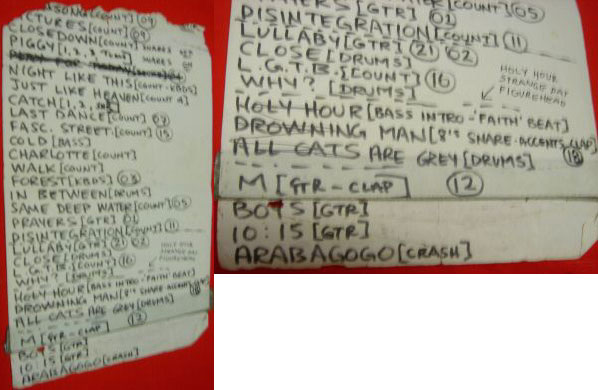 SONG [COUNT] 09
CTURES [COUNT] 09
CLOSEDOWN [COUNT] SNARES
PIGGY [1,2, SNARES
NIGHT LIKE THIS [COUNT-KBDS]
JUST LIKE HEAVEN [COUNT 4]
CATCH [1,2,
LAST DANCE [COUNT]
FASC. STREET [COUNT] 15
COLD [BASS]
CHARLOTTE [COUNT]
WALK [COUNT]
FOREST [KBDS] 03
IN BETWEEN [DRUMS]
SAME DEEP WATER [COUNT] 05
PRAYERS [GTR] 01
DISINTEGRATION [COUNT] 11
LULLABY [GTR] 21 02
CLOSE [DRUMS]
L.G.T.B. [COUNT] 16
WHY? [DRUMS]
HOLY HOUR
STRANGE DAY
FIGUREHEAD
HOLY HOUR [BASS INTRO-'FAITH' BEAT]
DROWNING MAN [8'S SNARE ACCENTS
ALL CATS ARE GREY [DRUMS] 18
M [GTR-CLAP] 12
BOYS [GTR]
10:15 [GTR]
ARABAGOGO [CRASH]
[COUNT] 05
AYERS [GTR] 01
DISINTEGRATION [COUNT] 11
LULLABY [GTR] 21 02
CLOSE [DRUMS]
L.G.T.B. [COUNT] 16
WHY? [DRUMS]
HOLY HOUR
STRANGE DAY
FIGUREHEAD
HOLY HOUR [BASS INTRO-'FAITH' BEAT]
DROWNING MAN [8'S SNARE-ACCENTS, CLAP]
ALL CATS ARE GREY [DRUMS] 18
M [GTR-CLAP] 12
BOYS [GTR]
10:15 [GTR]
ARABAGOGO [CRASH]